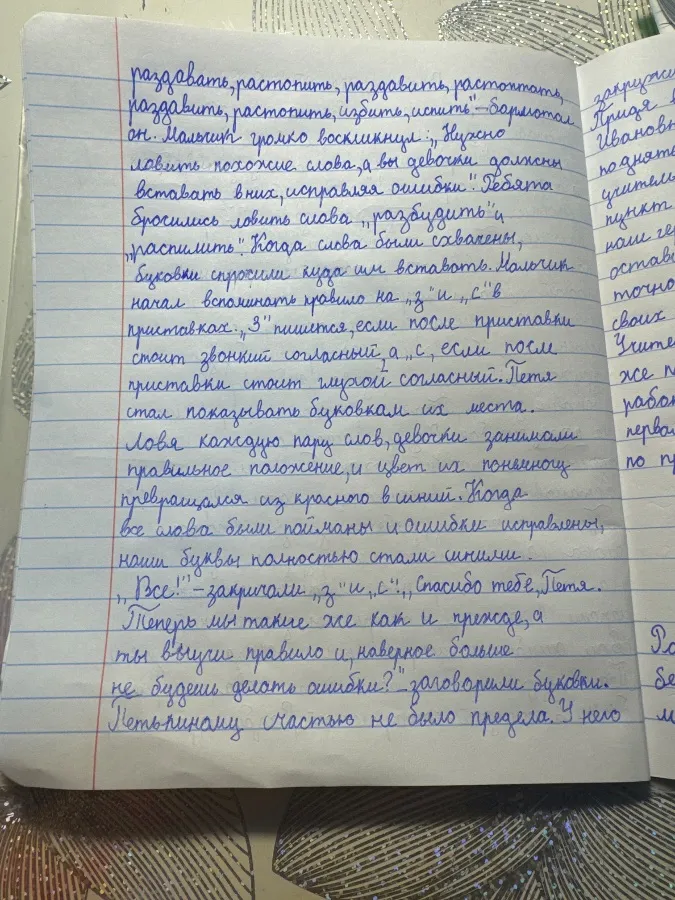 раздавать, растопить, раздавить, растоптать,
раздавить, растопить, избить, испить" – бормотал
он. Мальчик громко воскликнул: „Нужно
ловить похожие слова, а вы девочки должны
вставать в них, исправляя ошибки". Ребята
бросились ловить слова „разбудить" и
„распилить". Когда слова были схвачены,
буковки спросили куда им вставать. Мальчик
начал вспоминать правило на „з" и „с" в
приставках. „З" пишется, если после приставки
стоит звонкий согласный, а „с, если после
приставки стоит глухой согласный. Петя
стал показывать буковкам их места.
Ловя каждую пару слов, девочки занимали
правильное положение, и цвет их
превращался из красного в синий. Когда
все слова были пойманы и ошибки исправлены,
наши буквы полностью стали синими.
„Все!" – закричали „з" и „с". „Спасибо тебе, Петя.
Теперь мы такие же как и прежде, а
ты выучи правило и, наверное больше
не будешь делать ошибки?" – заговорили буковки.
Петькиному счастью не было предела. У него
закружи
Придя в
Ивановн
поднять
учитель
пункт
наш ге
остави
точно
своих
Учите
же п
рабо
перво
по пр
Ра
бе
м